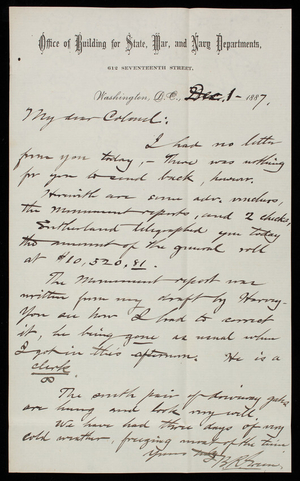 Office of Building for State, War, and Navy Departments,
612 SEVENTEENTH STREET,
Washington, D.C., Dec. 1 - 1887.
My dear Colonel:
I had no letter
from you today, - There was nothing
for you to send back, however.
Herewith are some adv. vouchers,
the Monument reports, and 2 checks,
Sutherland telegraphed you today
the amount of the general roll
at $10,320.81
The Monument report was
written from my draft by Harvey -
You see how I had to correct
it, he being gone as usual when
I got in this afternoon. He is a
clerk
The south pair of doorway gates
are hung and look very well.
We have had three days of very
cold weather, freezing most of the time
Yours truly
B. R. Green